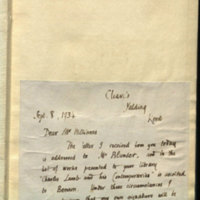 Cleavis
Yalding
Kent
Sept. 8, 1934
Dear Mr
The letter I received from you today
is addressed to Mr Blunden, and in the
list of works presented to your library
"Charles Lamb and his Contemporaries" is ascribed
to Benson. Under these circumstances I
that my own signature will be